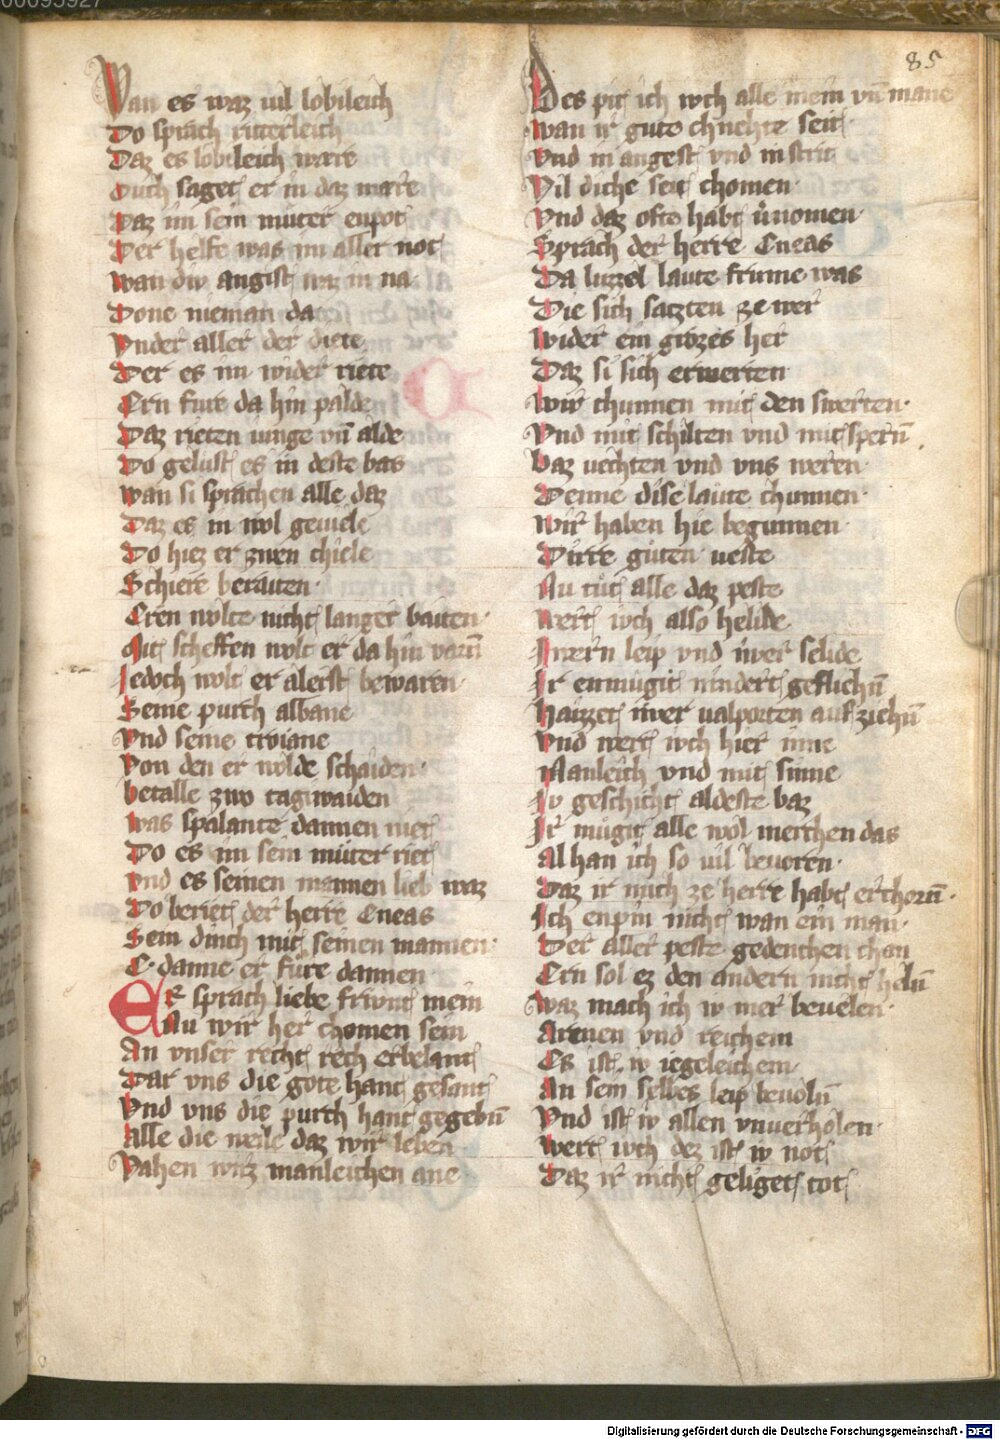 85
Wan es waz uil lobileich
Do sprach ritterleich
Daz es lobileich ware
Ouch saget er in daz mare
Daz im sein muter enpot
Der helfe was im aller not
wan diw angist waz in na
Done nieman da
Vnder aller der diete
Der es im wider riete
Ern fure da hin palde
Daz rieten iunge vn̄ alde
Do gelust es in deste bas
wan si sprachen alle daz
Daz es in wol geuiele
Do hiez er zwen chiele
Schiere beraiten·
Eren wolte nicht langer baiten·
Mit scheffen wolt er da hin varn̄
Jedoch wolt er alerst bewaren·
Seine purch albane
Vnd seine troiane
Von den er wolde schaiden·
betalle zwo tagwaiden
was spalante dannen niet
Do es im sein muter riet
vnd es seinen mannen lieb waz
Do beriet der herre Eneas
Sein dinch mit seinen mannen·
E·danne er fure dannen
Er sprach liebe friwnt mein
Nu wir her chomen sein
An vnser recht rech erbelant
Dar vns die gote hant gesant
Vnd vns die purch hant gegebn̄
Alle die weile daz wir leben
Vahen wirz manleichen ane
Des pit ich iwch alle mein vn̄ mane
wan ir gute chnehte seit·
Vnd in angest vnd in strit
Vil diche seit chomen·
Vnd daz ofte habt u̓nomen·
Sprach der herre Eneas
Da luzzel laute frume was
Die sich satzten ze wer
Wider ein grozes her
Daz si sich erwerten
Wir chunnen mit den swerten·
Vnd mit schilten vnd mit spern̄
baz uechten vnd vns weren·
Denne dise laute chunnen·
Wir haben hie begunnen·
Dirre guten ueste
Nu tut alle daz peste
Wert iwch also helide
Jwern leip vnd iwer selide
Jr enmugit nindert geflichn̄
Haizzet iwer ualporten auf ziehn̄
Vnd wert iwch hier inne
Manleich vnd mit sinne
Jv geschicht aldeste baz
Jr mugit alle wol merchen das
al han ich so uil beuoren·
Daz ir mich ze herre habt erchorn̄·
Ich enpin nicht wan ein man·
Der aller peste gedenchen chan
Ern sol ez den andern nicht heln̄
Waz mach ich iv mer beuelen·
Armen vnd reichem
Es ist iv iegeleichem·
An sein selbes leip beuoln̄
Vnd ist iv allen vnuerholen·
Wert iwch dez ist iv not
Daz ir nicht geliget tot
Digitalisierung gefördert durch die Deutsche Forschungsgemeinschaft - DFG